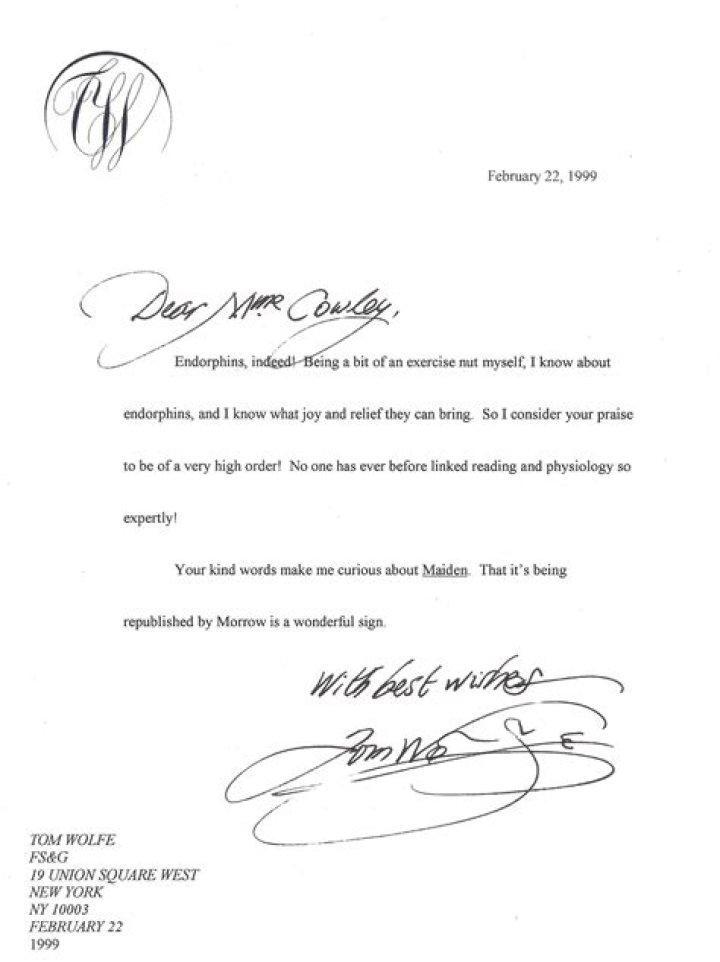 TW
February 22, 1999
Dear Mme Cowley,
Endorphins, indeed! Being a bit of an exercise nut myself, I know about
endorphins, and I know what joy and relief they can bring. So I consider your praise
to be of a very high order! No one has ever before linked reading and physiology so
expertly!
Your kind words make me curious about Maiden. That it's being
republished by Morrow is a wonderful sign.
With best wishes
Tom Wolfe
TOM WOLFE
FS&G
19 UNION SQUARE WEST
NEW YORK
NY 10003
FEBRUARY 22
1999